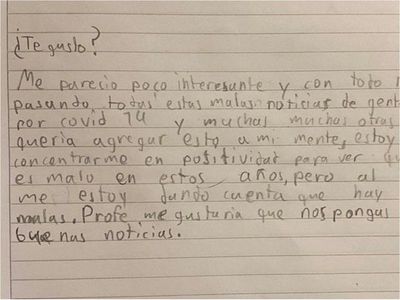 ¿Te gusto?
Me parecio poco interesante y con todo
pasando, todas estas malas noticias de gent
por covid 19 y muchas muchas otras
queria agregar esto a mi mente, estoy
concentrarme en positividad para ver qu
es malo en estos años, pero al
me estoy dando cuenta que hay
malas. Profe me gustaria que nos pongas
buenas noticias.